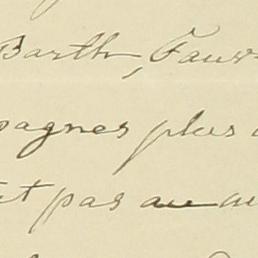 Barth, Faus
pagnes plus
t pas au